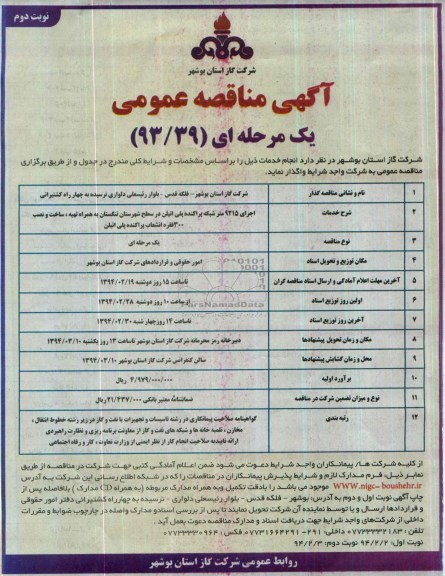 نوبت دوم
شرکت گاز استان بوشهر
آگهی مناقصه عمومی
یک مرحله ای (۹۳/۳۹)
شرکت گاز استان بوشهر در نظر دارد انجام خدمات ذیل را براساس مشخصات و شرایط کلی مندرج در جدول و از طریق برگزاری
مناقصه عمومی به شرکت واجد شرایط واگذار نماید.
۱ نام و نشانی مناقصه گذار شرکت گاز استان بوشهر- فلکه قدس - بلوار رئیسعلی دلواری نرسیده به چهار راه کشتیرانی
۲ شرح خدمات اجرای ۹۲۱۵ متر شبکه پراکنده پلی اتیلن در سطح شهرستان تنگستان به همراه تهیه ، ساخت و نصب
۳۰۰فقره انشعاب پراکنده پلی اتیلن
۳ نوع مناقصه یک مرحله ای
۴ مکان توزیع و تحویل اسناد امور حقوقی و قراردادهای شرکت گاز استان بوشهر
۵ آخرین مهلت اعلام آمادگی و ارسال اسناد مناقصه گران تاساعت ۱۵ روز دوشنبه ۱۳۹۴/۰۲/۱۹
۶ اولین روز توزیع اسناد ازساعت ۱۰ روز دوشنبه ۱۳۹۴/۰۲/۲۸
۷ آخرین روز توزیع اسناد تاساعت ۱۴ روز چهار شنبه ۱۳۹۴/۰۲/۳۰
۸ مکان و زمان تحویل پیشنهادها دبیرخانه رمز محرمانه شرکت گاز استان بوشهر تاساعت ۱۳ روز یکشنبه ۱۳۹۴/۰۳/۱۰
۹ محل و زمان گشایش پیشنهادها سالن کنفرانس شرکت گاز استان بوشهر ۱۳۹۴/۰۳/۱۰
۱۰ برآورد اولیه ۴/۱۷۹/۰۰۰/۰۰۰ ریال
۱۱ نوع و میزان تضمین شرکت در مناقصه ضمانتنامه معتبر بانکی ۲۱/۴۳۷/۰۰۰ریال
۱۲ رتبه بندی گواهینامه صلاحیت پیمانکاری در رشته تاسیسات و تجهیزات یا نفت و گاز در زیر رشته خطوط انتقال ،
مخازن ، تلمبه خانه ها و شبکه های نفت و گاز از معاونت برنامه ریزی و نظارت راهبردی
ارائه تاییدیه صلاحیت انجام کار از نظر ایمنی از وزارت تعاون ، کار و رفاه اجتماعی
از کلیه شرکت ها/ پیمانکاران واجد شرایط دعوت می شود ضمن اعلام آمادگی کتبی جهت شرکت در مناقصه از طریق
نمابر ذیل، فرم مدارک لازم و شرایط پذیرش پیمانکاران در مناقصات را که در شبکه اطلاع رسانی این شرکت به آدرس
WWW.nigc-boushehr.ir موجود می باشد را بادقت تکمیل و به همراه مدارک مربوطه (به همراه CD مدارک) بلافاصله پس از
چاپ آگهی نوبت اول و دوم به آدرس: بوشهر - فلکه قدس - بلوار رئیسعلی دلواری - نرسیده به چهارراه کشتیرانی دفتر امور حقوقی
و قراردادها ارسال و یا توسط نماینده آن شرکت تحویل نمایند تا پس از بررسی اسناد و مدارک واصله در چارچوب ضوابط و مقررات
داخلی از شرکت‌های واجد شرایط جهت دریافت اسناد و مدارک مناقصه دعوت بعمل آید .
نوبت اول: ۹۴/۲/۲ نوبت دوم: ۹۴/۲/۳
روابط عمومی شرکت گاز استان بوشهر